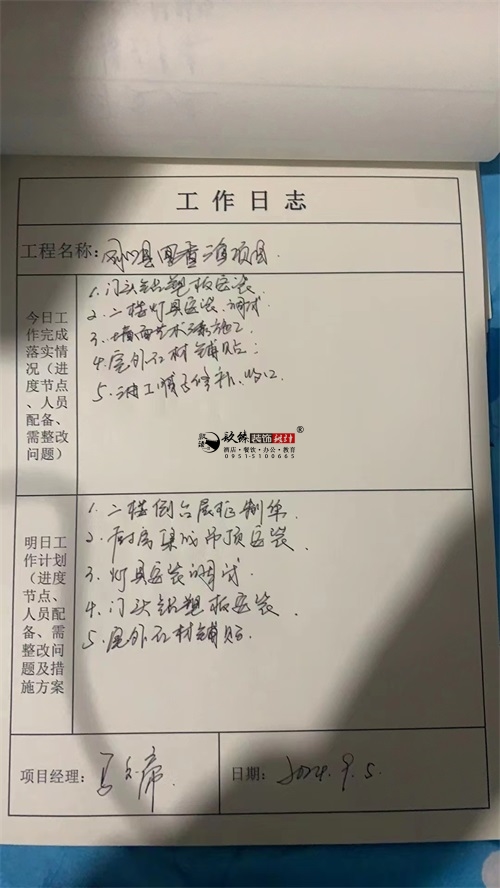 工作日志
工程名称：
今日工作完成落实情况（进度节点、人员配备、需整改问题）
1. 门头铝塑板安装
2. 二楼灯具安装、调试
3. 墙面艺术漆施工
4. 屋外石材铺贴
5. 油工
欧臻装饰设计®
酒店·餐饮·办公·教育
0951-5100665
明日工作计划（进度节点、人员配备、需整改问题及措施方案
1. 二楼
2. 厨房集成吊顶安装
3. 灯具安装调试
4. 门头铝塑板安装
5. 屋外石材铺贴.
项目经理：
日期：2024.9.5.